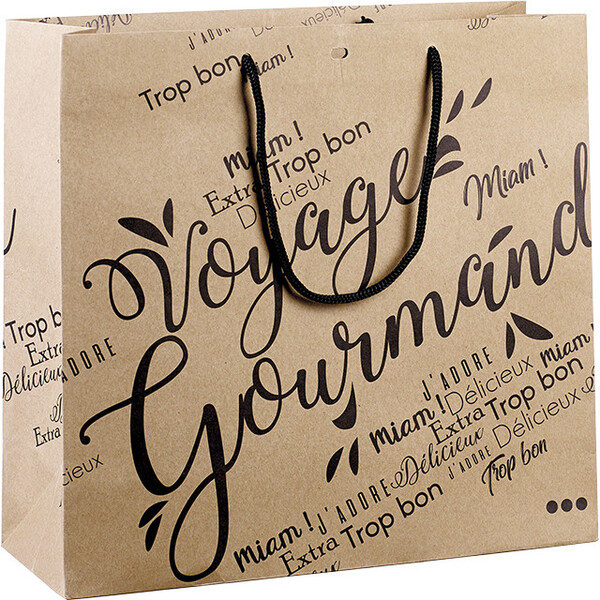 J'ADORE Délicieux
Trop bon
Miam !
Miam !
Extra Trop bon
Délicieux
Miam !
Voyage
Gourmand
J'ADORE
Délicieux
Miam !
Miam !
Extra Trop bon
Délicieux
J'ADORE
Délicieux
Trop bon
Miam !
J'ADORE
Extra Trop bon
Délicieux
Trop b
Extra
J'ADORE
Délicieux
Extra
cieux